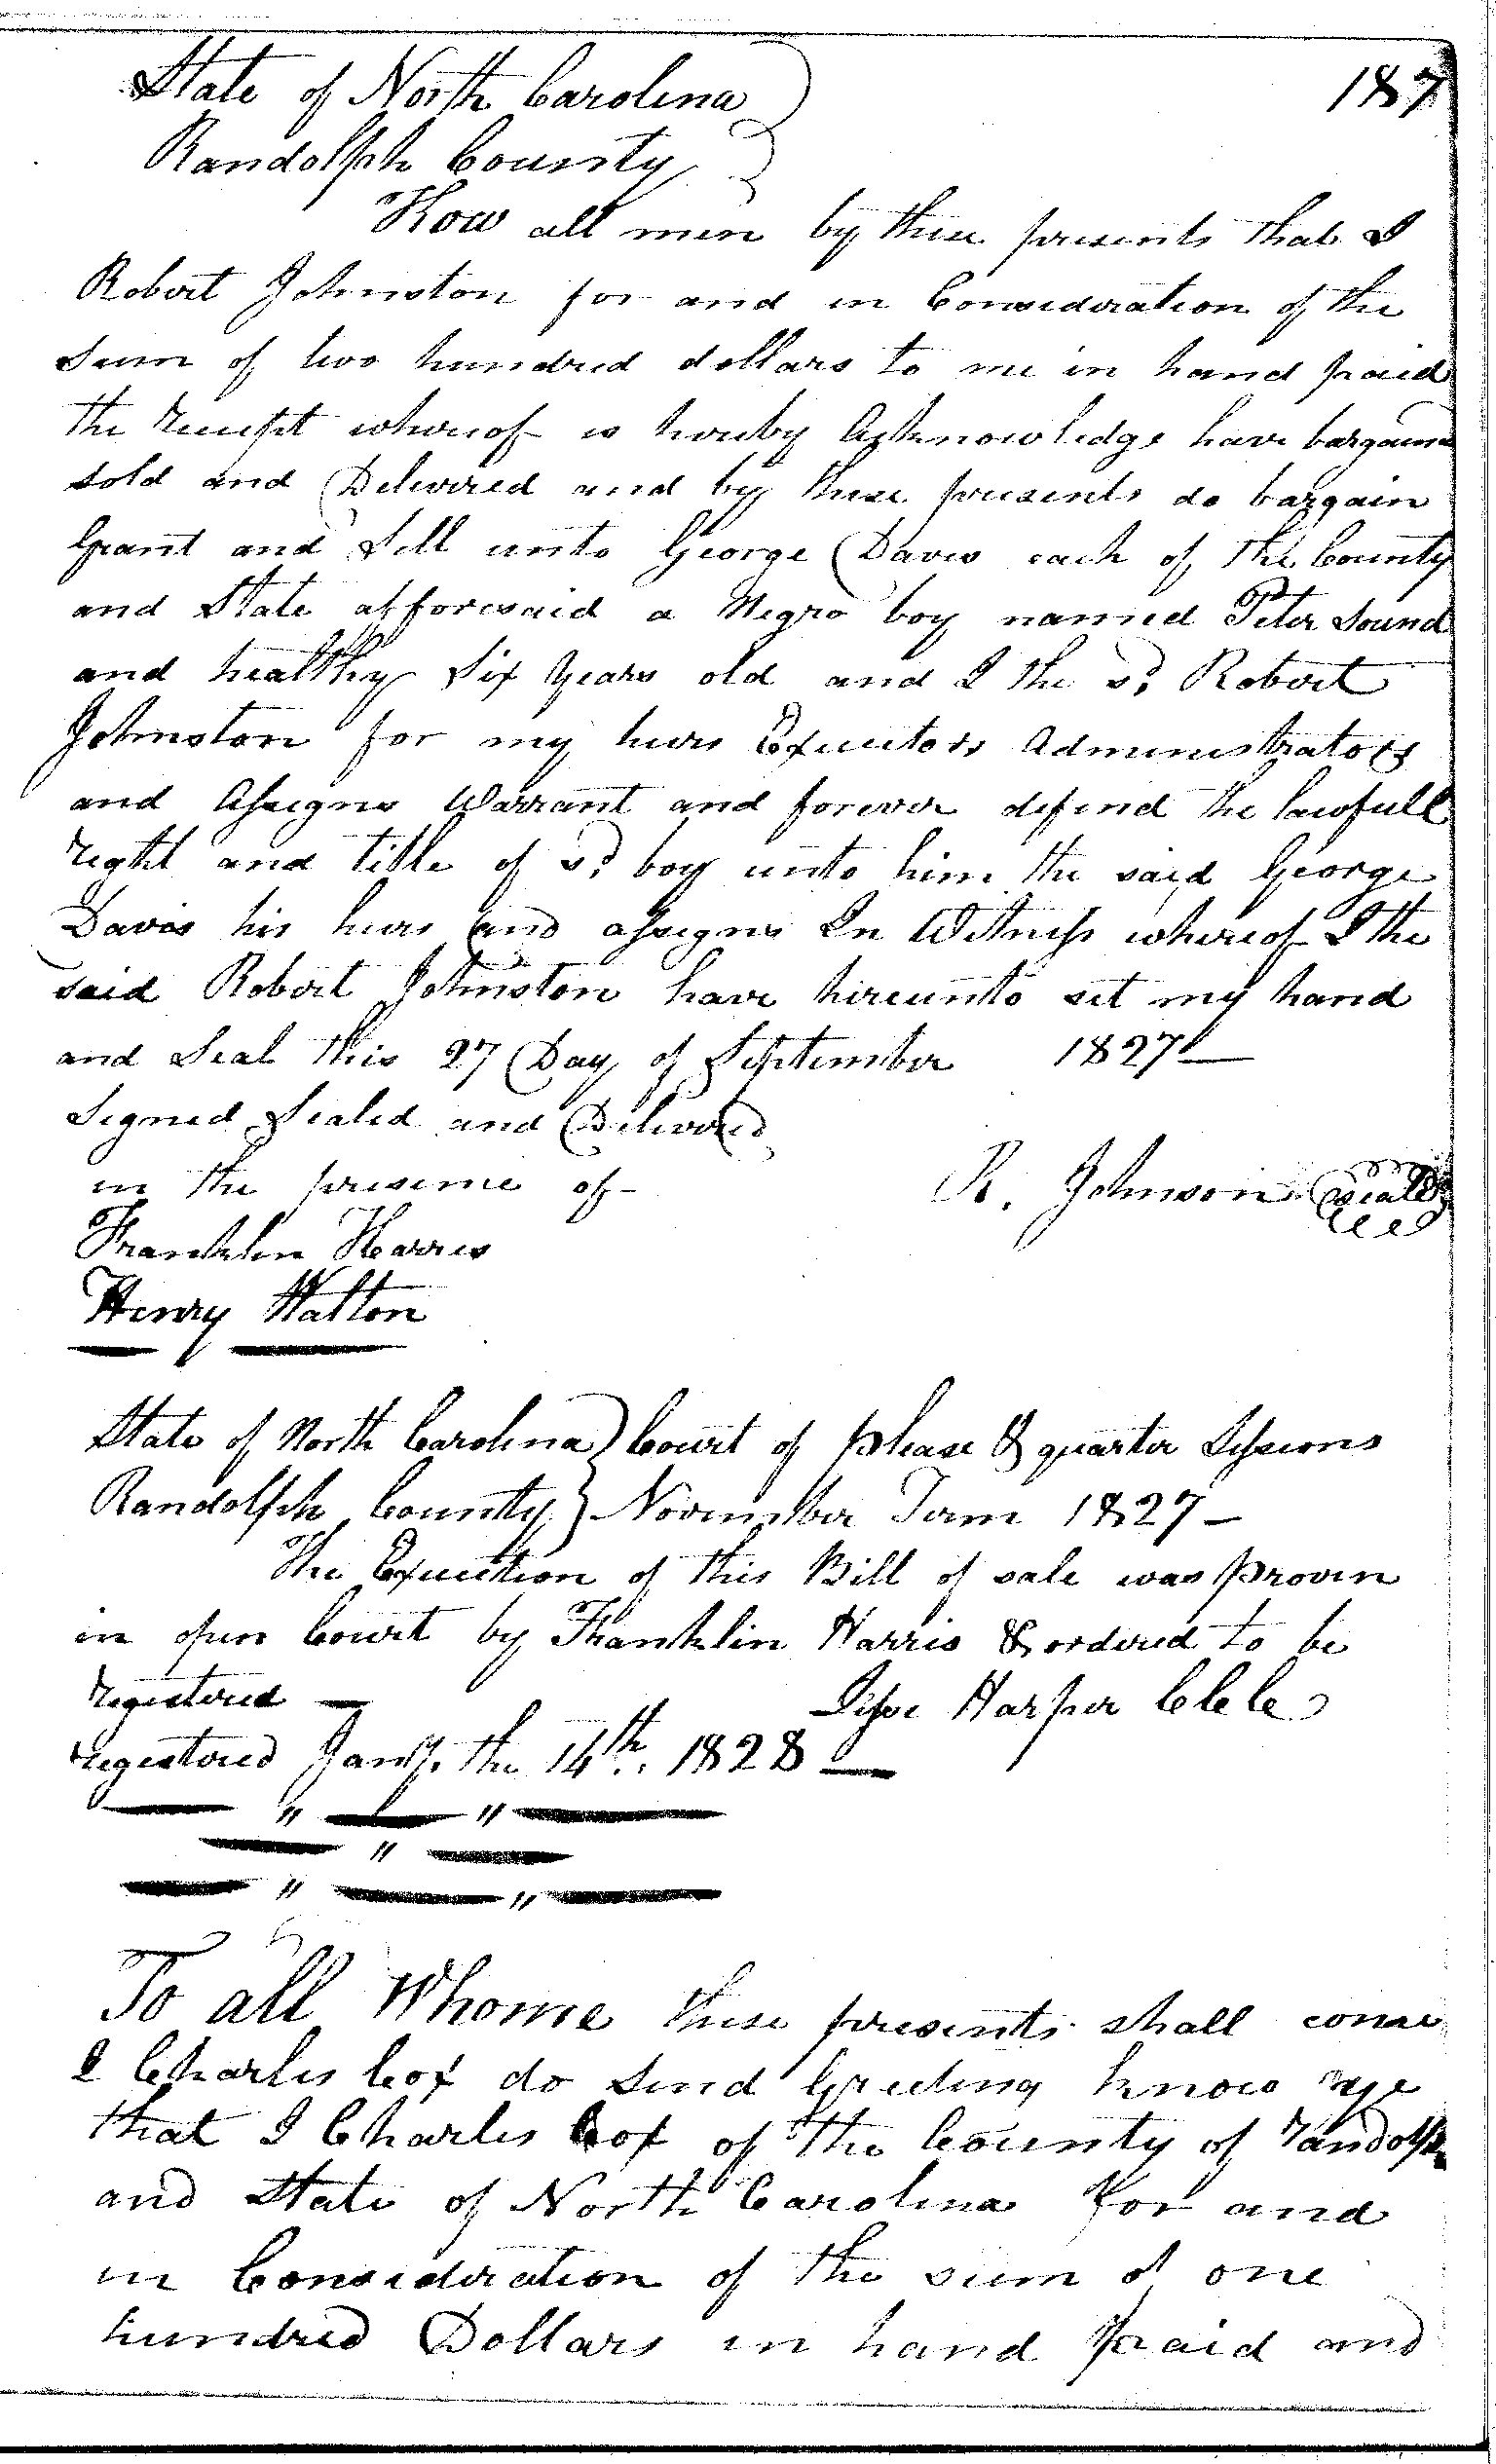 187
State of North Carolina
Randolph County
Know all men by these presents that I
Robert Johnston for and in Consideration of the
sum of two hundred dollars to me in hand paid
the receipt whereof is hereby Acknowledge have bargaind
sold and Delivered and by these presents do bargain
Grant and Sell unto George Daves each of the County
and State afforesaid a Negro boy named Peter sound
and healthy Six years old and I the sd. Robert
Johnston for my heirs Executors Administrators
and Assigns Warrant and forever defend the lawfull
right and title of sd. boy unto him the said George
Davis his heirs and assigns In Witness whereof I the
said Robert Johnston have hereunto set my hand
and Seal this 27 Day of September 1827
Signed Sealed and Delivered
in the presence of
R. Johnson (seal)
Franklin Harris
Henry Walton
State of North Carolina Court of please & quarter Sessions
Randolph County November Term 1827
The Execution of this Bill of sale was proven
in open Court by Franklin Harris & ordered to be
registered
Jesse Harper C C C
registered Jany. the 14th. 1828
To all Whome these presents shall come
I Charles Cox do Send Greeting know ye
that I Charles Cox of the County of randolph
and State of North Carolina for and
in Consideration of the sum of one
hundred Dollars in hand paid and